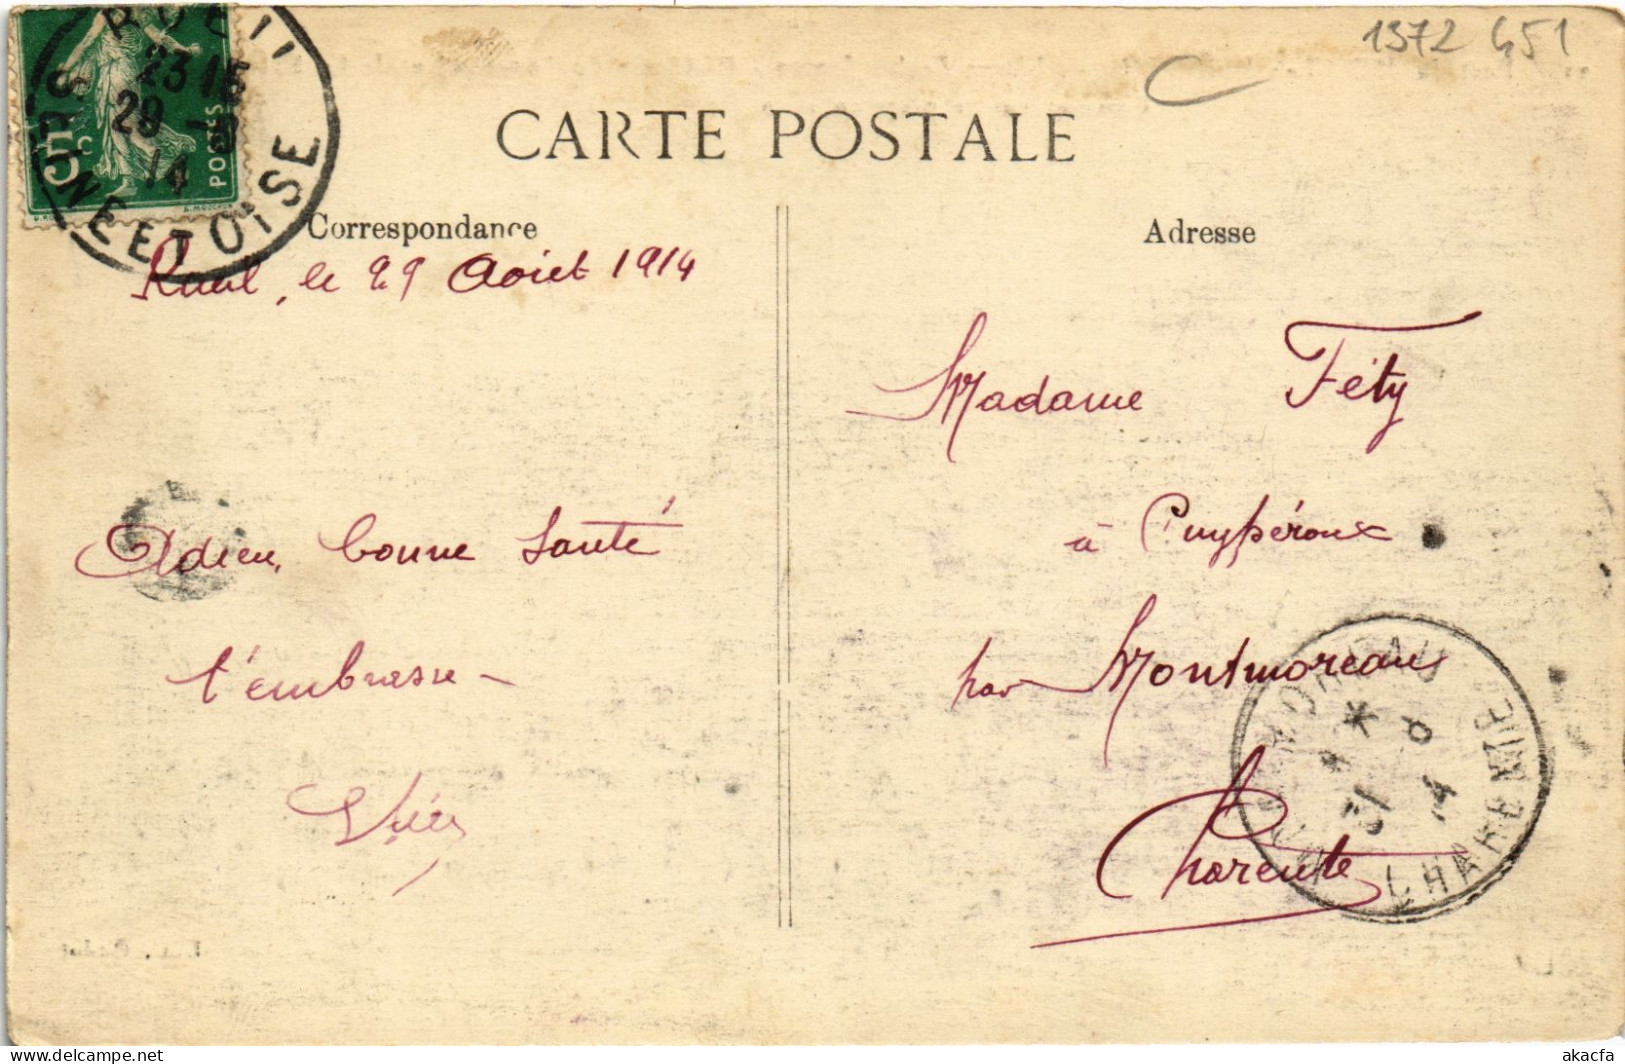 1372 451
5c
POSTES
RUEIL
23 15
29 -8
14
SNE ET OISE
CARTE POSTALE
Correspondance
Adresse
Rueil, le 29 Août 1914
Madame Féty
à Puypéroux
par Montmoreau
Charente
Adieu, bonne santé
t'embrasse
MONTMOREAU
31 8
14
CHARENTE
akacfa
delcampe.net